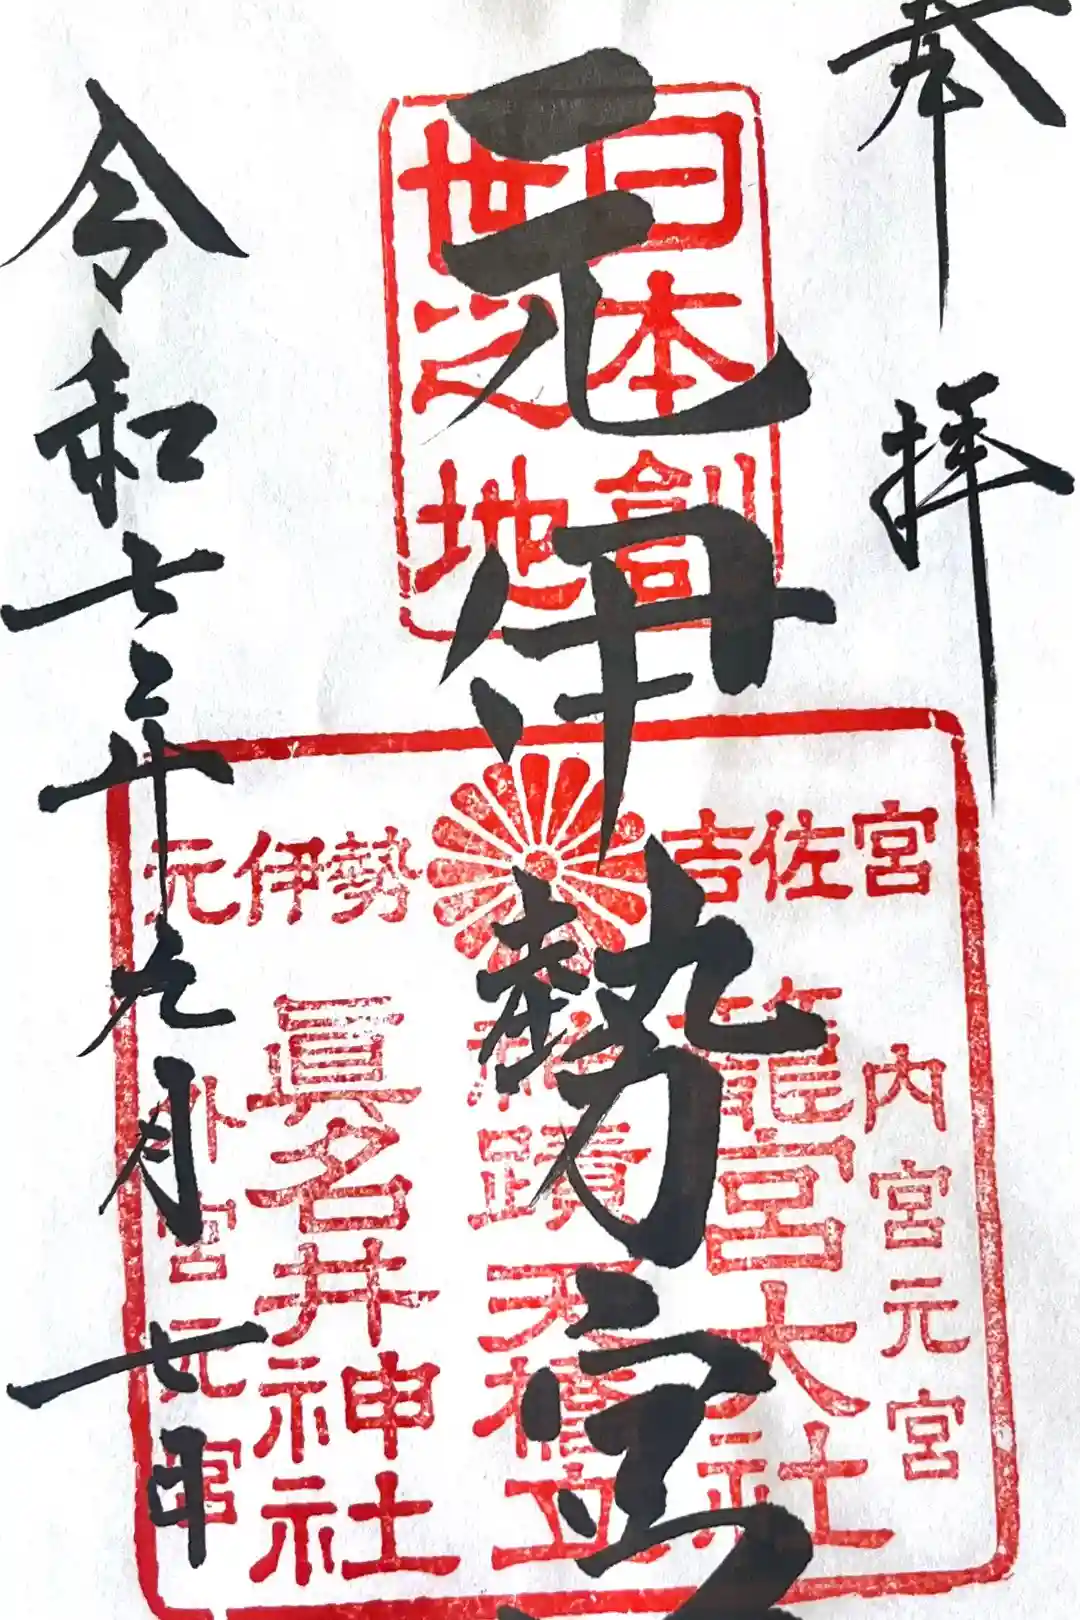 奉拝
元伊勢宮
令和七年九月七日
日本創
世之地
元伊勢 吉佐宮
内宮元宮
籠宮大社
神蹟天橋立
眞名井神社
外宮元宮